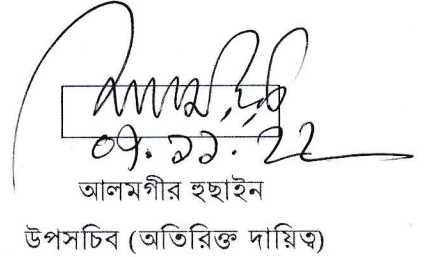 ০৭.১১.২২
আলমগীর হুছাইন
উপসচিব (অতিরিক্ত দায়িত্ব)